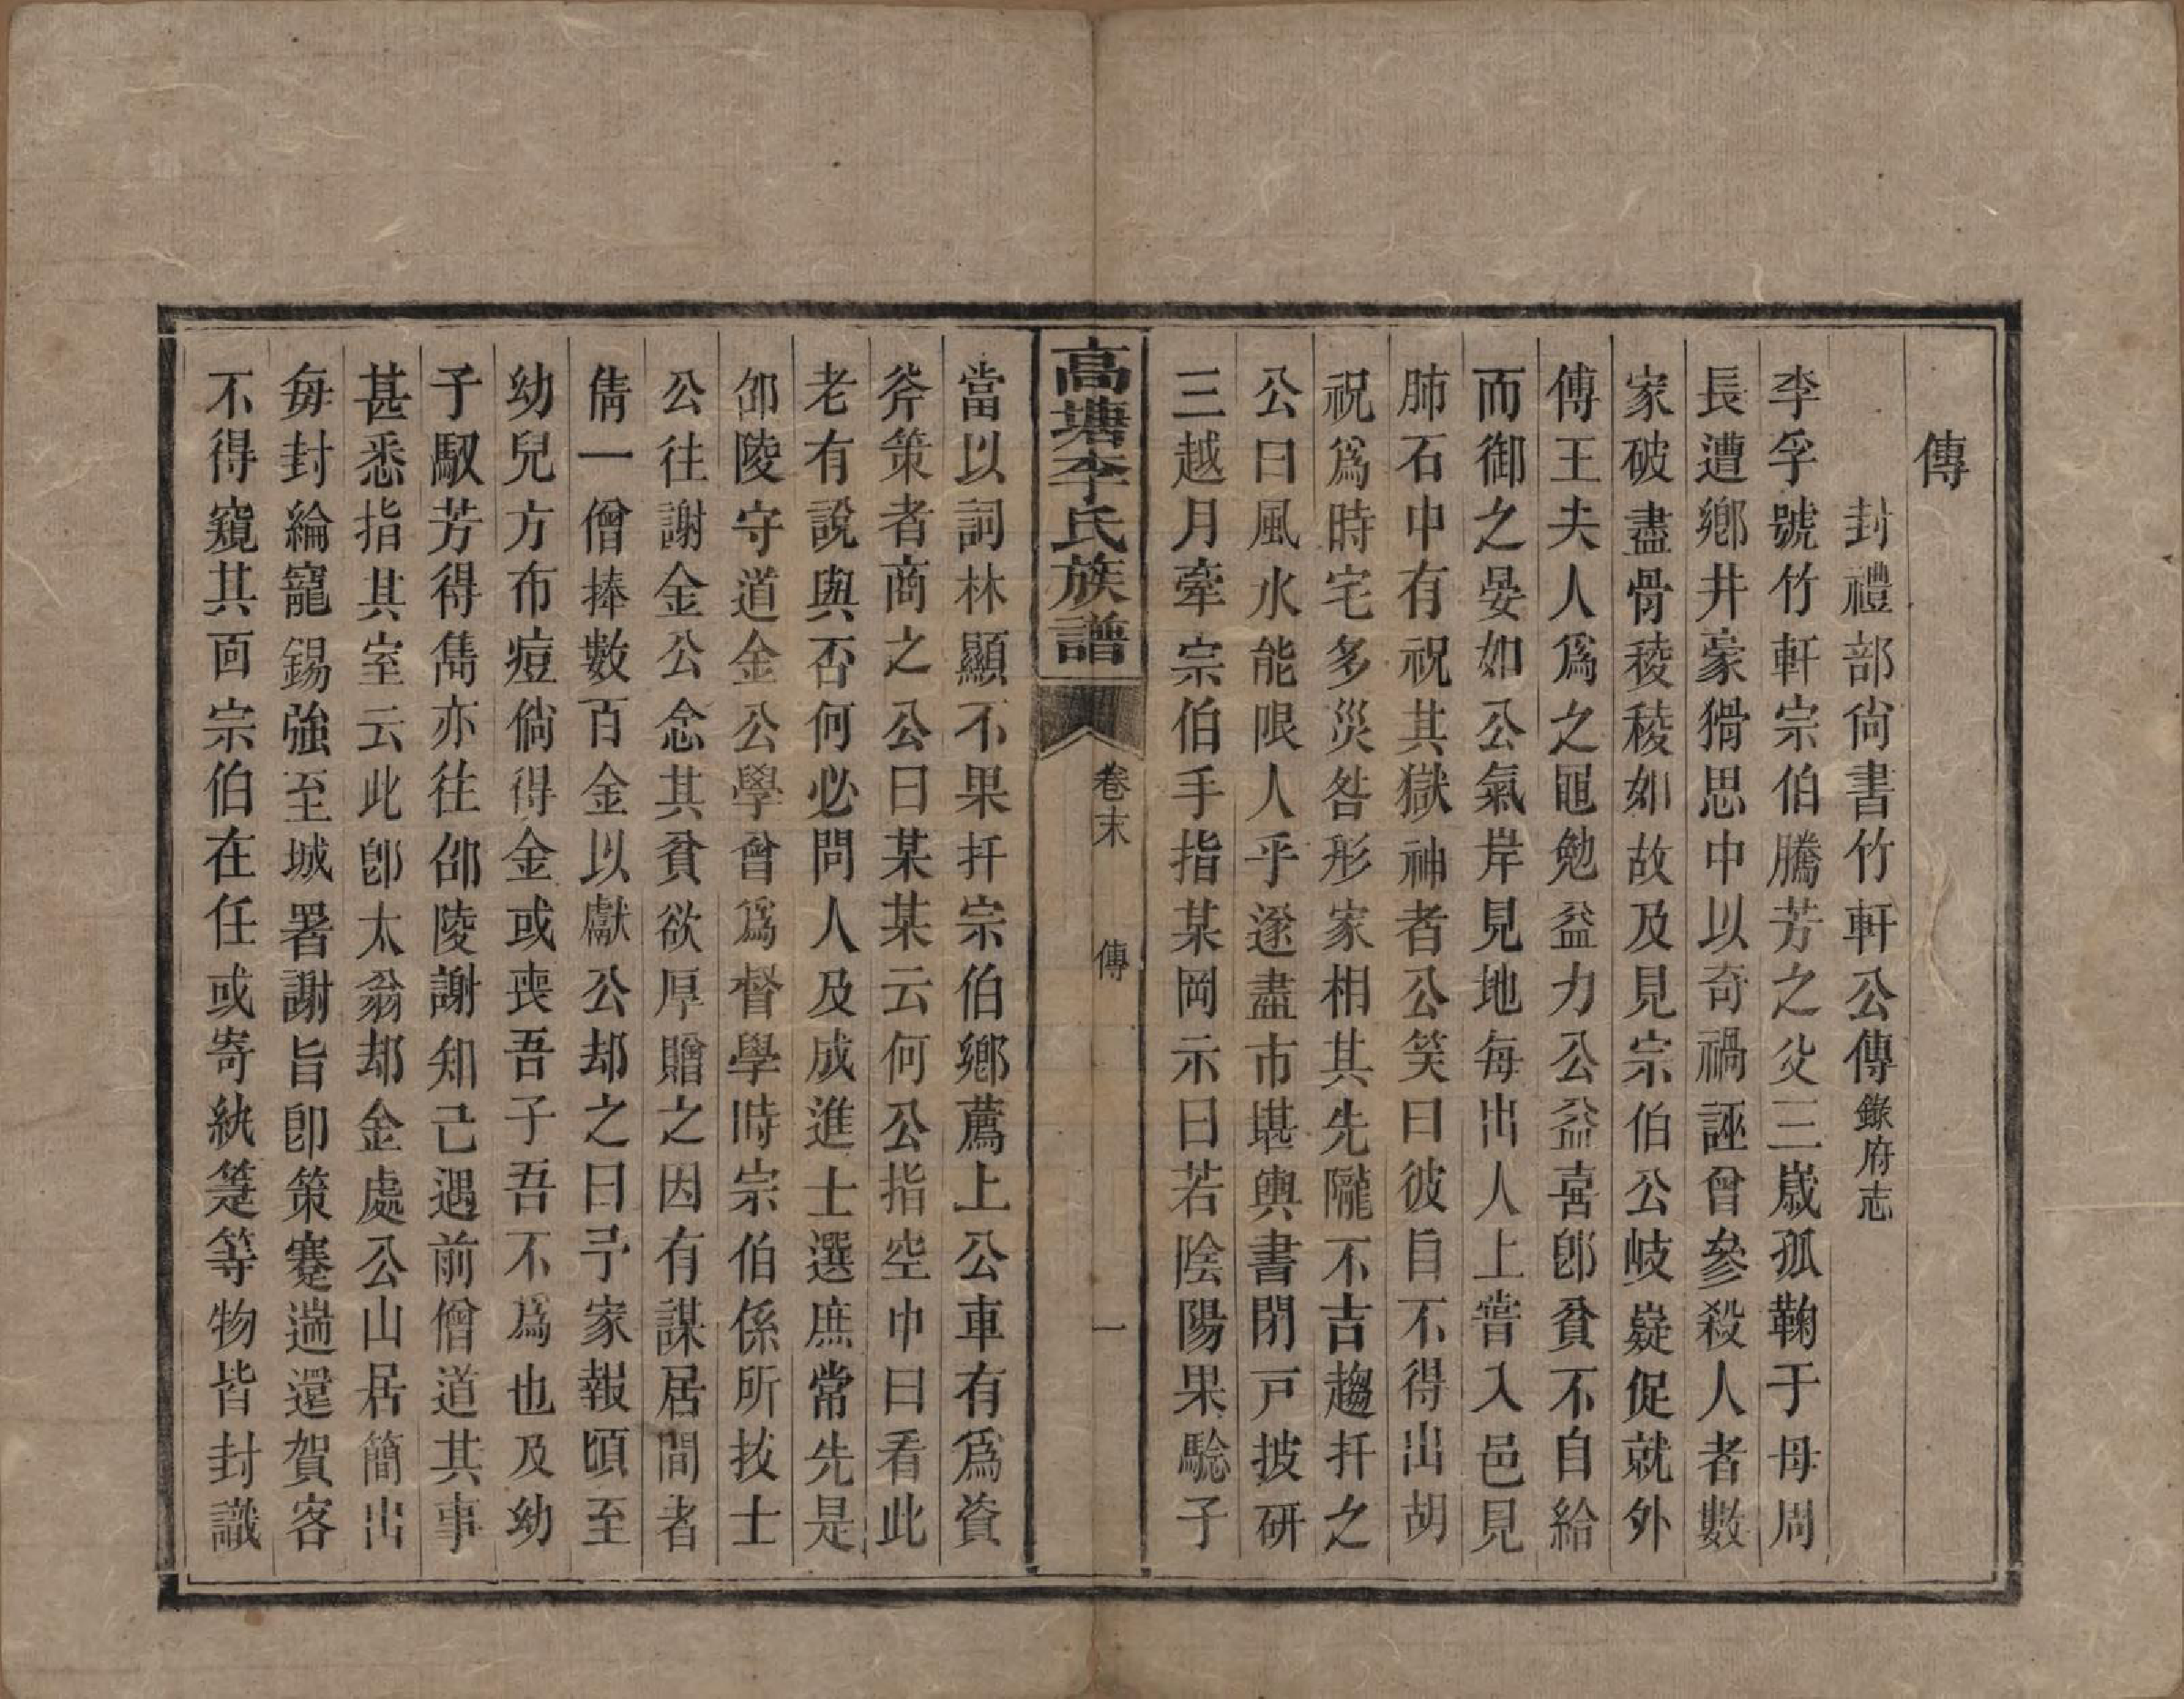 傳
封禮部尙書竹軒公傳錄府志
李孚號竹軒宗伯騰芳之父三嵗孤鞠于母周
長遭鄉井豪猾思中以奇禍誣曾參殺人者數
家破盡骨稜稜如故及見宗伯公岐嶷促就外
傅王夫人爲之黽勉益力公益喜卽貧不自給
而御之晏如公氣岸見地每出人上嘗入邑見
肺石中有祝其獄神者公笑曰彼自不得出胡
祝爲時宅多災咎形家相其先隴不吉趨扦之
公曰風水能限人乎遂盡市堪輿書閉戸披研
三越月牽宗伯手指某岡示曰若陰陽果驗子
高塘李氏族譜
卷末
傳
一
當以詞林顯不果扦宗伯鄉薦上公車有爲資
斧策者商之公曰某某云何公指空巾曰看此
老有說與否何必問人及成進士選庶常先是
邵陵守道金公學曾爲督學時宗伯係所拔士
公往謝金公念其貧欲厚贈之因有謀居間者
倩一僧捧數百金以獻公却之曰予家報頃至
幼兒方布痘倘得金或喪吾子吾不爲也及幼
子馭芳得雋亦往邵陵謝知己遇前僧道其事
甚悉指其室云此卽太翁却金處公山居簡出
每封綸寵錫強至城署謝旨卽策蹇遄還賀客
不得窺其面宗伯在任或寄紈箑等物皆封識